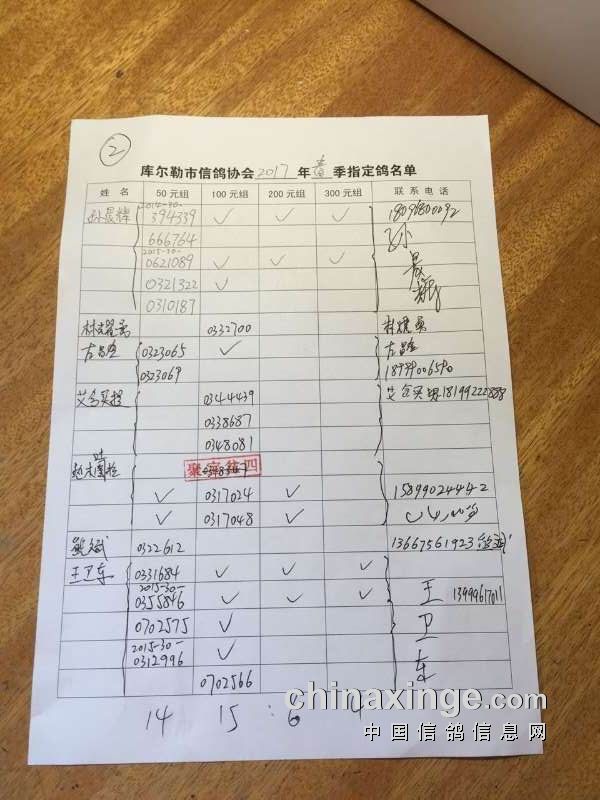 2
库尔勒市信鸽协会2017年春季指定鸽名单
姓 名 50元组 100元组 200元组 300元组 联系电话
2014-30-
孙晨辉 394339 ✓ ✓ ✓
666764
2015-30-
0621089 ✓ ✓ ✓
0321322 ✓
0310187
0332700
左昌全 0323065 ✓ 左昌全
0323069
艾合买提 0344439 艾合买提 18199222888
0338687
0348081
聚亨德四
✓ 0317024 ✓ 15899024442
✓ 0317048 ✓
熊斌 0322612 13667561923 熊斌
王卫东 0331684 ✓ ✓ ✓
2015-30-
0355846 ✓ ✓ ✓ 王 13999617011
0702575 ✓ 卫
2015-30-
0312996 ✓ 东
0702566
14 15 : 6 4
chinaxinge.com
中国信鸽信息网